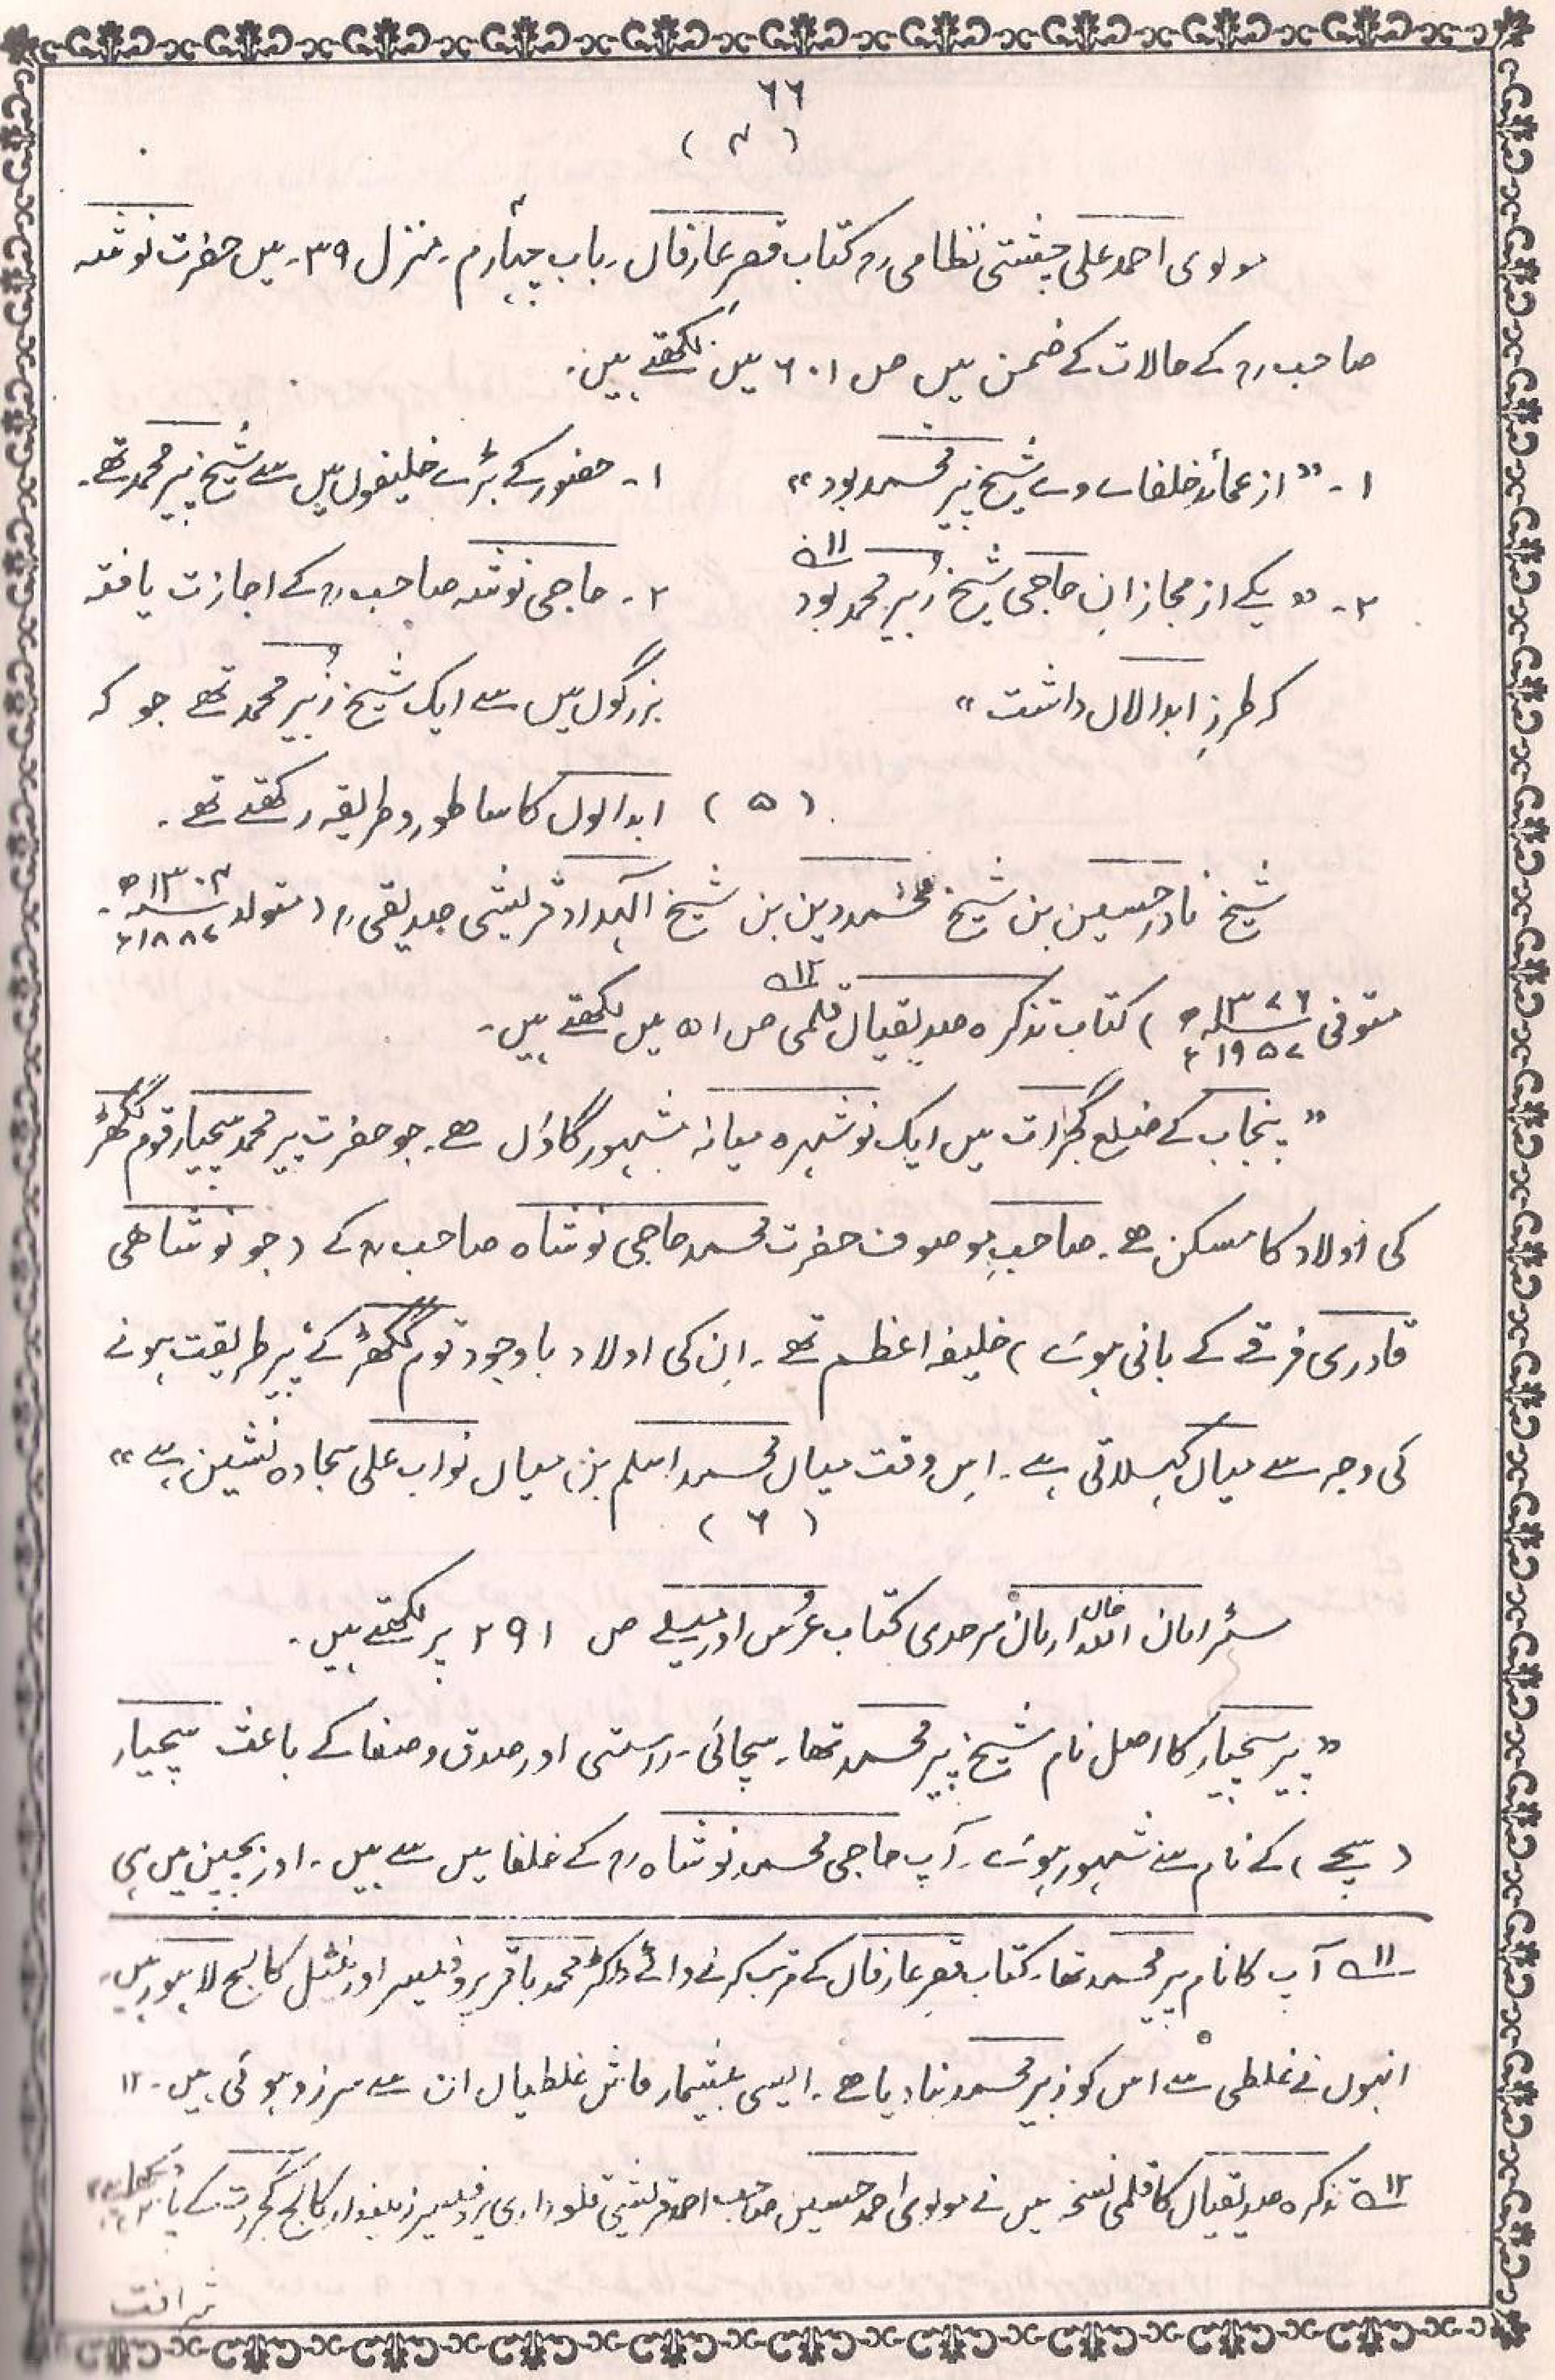 ٦٦
(۴)
مولوی احمد علی چشتی نظامی رح کتاب قصر عارفاں۔ باب چہارم۔ منزل ۳۹۔ میں حضرت نوشہ
صاحب رح کے حالات کے ضمن میں ص ٦٠١ میں لکھتے ہیں۔
۱۔ "از عمائد خلفاے وے شیخ پیر محمد بود"
۱۔ حضور کے بڑے خلیفوں میں سے شیخ پیر محمد تھے۔
۲۔ "یکے از مجازانِ حاجی شیخ زبیر محمد بود ۱۱؎
کہ طرزِ ابدالاں داشت"
۲۔ حاجی نوشہ صاحب رح کے اجازت یافتہ
بزرگوں میں سے ایک شیخ زُبیر محمد تھے جو کہ
ابدالوں کا سا طور و طریقہ رکھتے تھے۔
(۵)
شیخ نادر حسین بن شیخ محمد دین بن شیخ الہداد قریشی صدیقی رح (متولد ۱۳۰۴ھ ۱۸۸۷ء۔
متوفی ۱۳۷٦ھ ۱۹۵۷ء) کتاب تذکرہ صدیقیاں قلمی ۱۲؎ ص ۵۱ میں لکھتے ہیں۔
"پنجاب کے ضلع گجرات میں ایک نوشہرہ میانہ مشہور گاؤں ہے۔ جو حضرت پیر محمد سچیار قوم گکھڑ
کی اولاد کا مسکن ہے۔ صاحبِ موصوف حضرت محمد حاجی نوشاہ صاحب رح کے (جو نوشاھی
قادری فرقے کے بانی ہوئے) خلیفہ اعظم تھے۔ اِن کی اولاد باوجود قوم گکھڑ کے پیر طریقت ہونے
کی وجہ سے میاں کہلاتی ہے۔ اِس وقت میاں محمد اسلم بن میاں نواب علی سجادہ نشین ہے"
(٦)
مسٹر امان اللہ خاں ارمان سرحدی کتاب عُرس اور میلے ص ۲۹۱ پر لکھتے ہیں۔
"پیر سچیار کا اصل نام شیخ پیر محمد تھا۔ سچائی۔ راستی اور صدق و صفا کے باعث سچیار
(سچے) کے نام سے مشہور ہوئے۔ آپ حاجی محمد نوشاہ رح کے خلفا میں سے ہیں۔ اور بچپن میں ہی
۱۱؎ آپ کا نام پیر محمد تھا۔ کتاب قصرِ عارفاں کے مرتب کرنے والے ڈاکٹر محمد باقر پروفیسر اورنٹیل کالج لاہور ہیں۔
انہوں نے غلطی سے اس کو زبیر محمد بنا دیا ہے۔ ایسی بیشمار فاش غلطیاں ان سے سرزد ہوئی ہیں۔ ۱۲
۱۲؎ تذکرہ صدیقیاں کا قلمی نسخہ میں نے مولوی احمد حسین صاحب احمد قریشی قلعہ داری پروفیسر زمیندار کالج گجرات کے پاس دیکھا ہے
شرافت